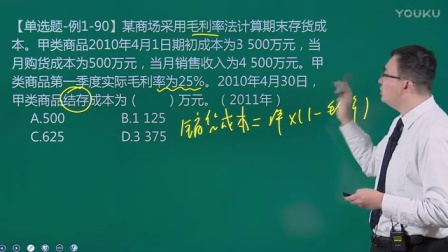 YOUKU
【单选题-例1-90】某商场采用毛利率法计算期末存货成
本。甲类商品2010年4月1日期初成本为3 500万元，当
月购货成本为500万元，当月销售收入为4 500万元。甲
类商品第一季度实际毛利率为25%。2010年4月30日，
甲类商品结存成本为（ ）万元。（2011年）
A.500 B.1 125
C.625 D.3 375
销售成本=
×(1-毛利率)